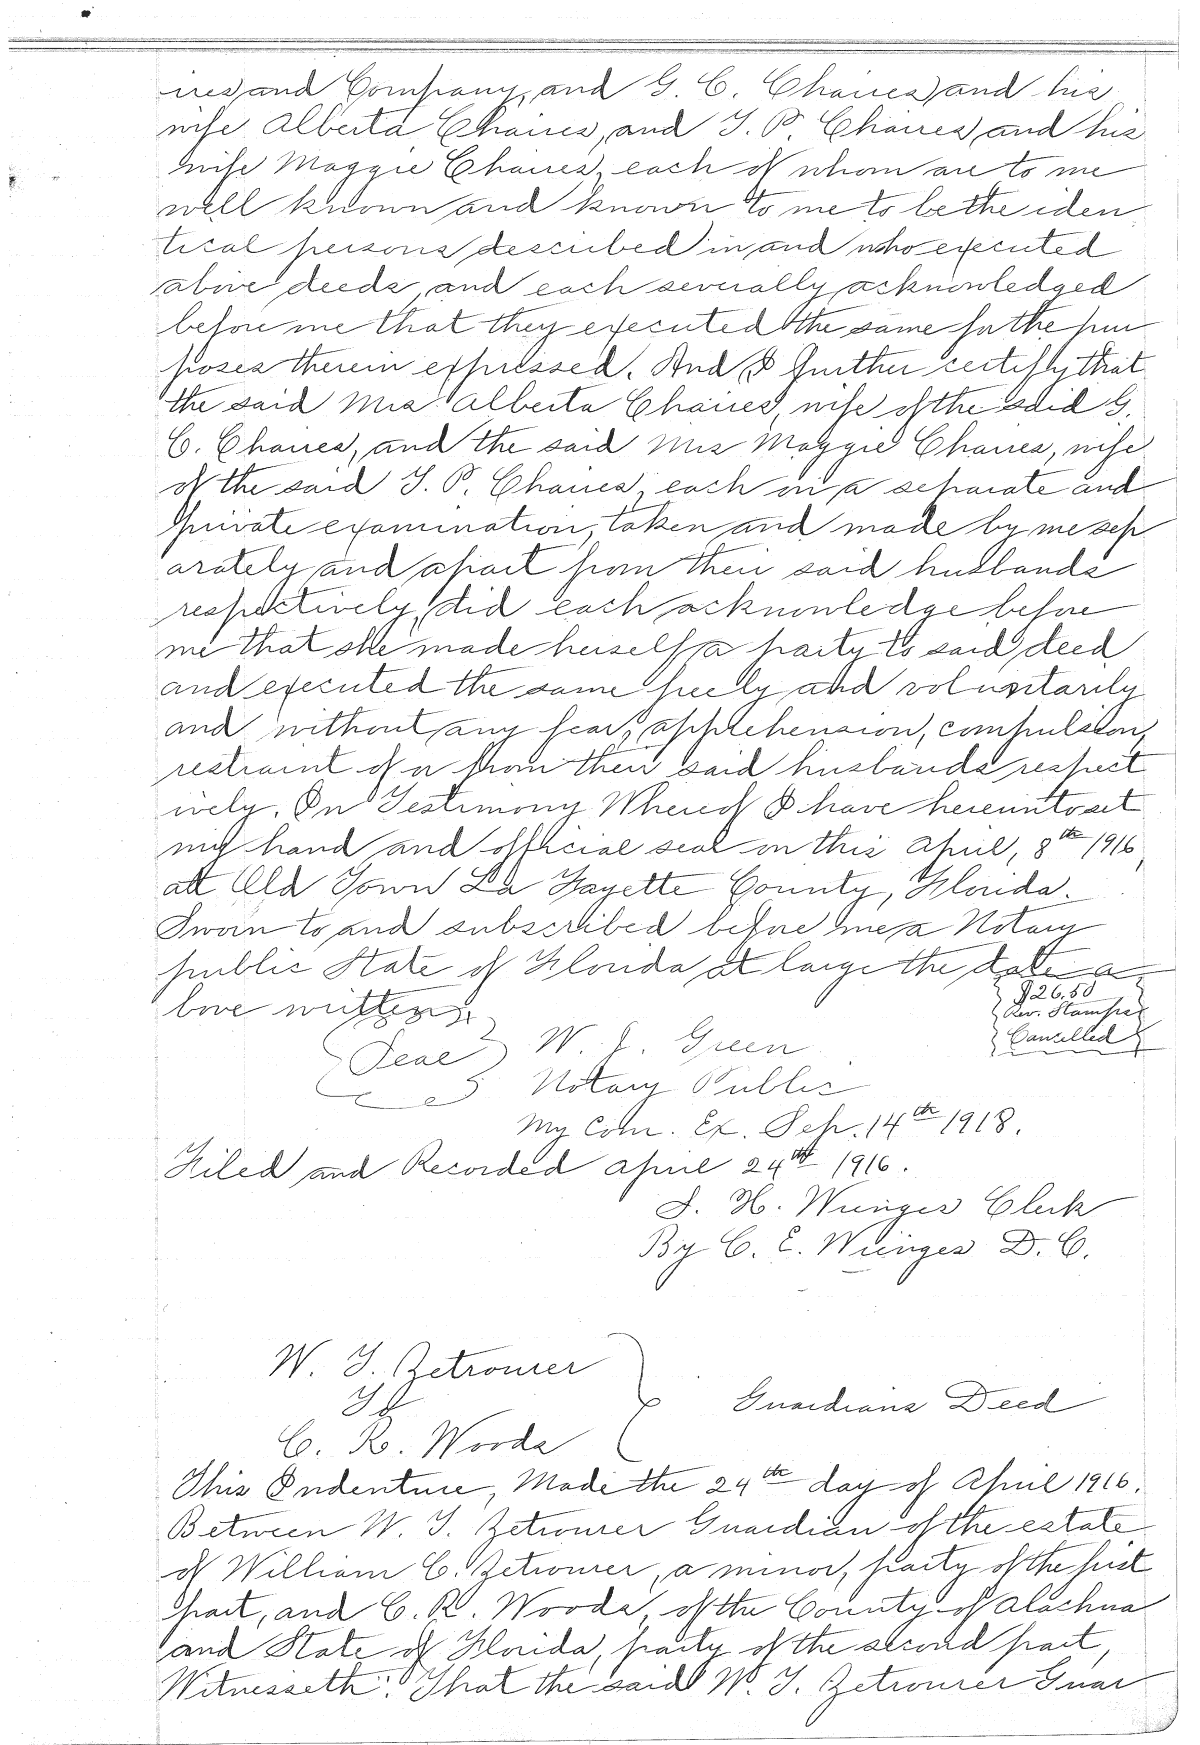 ires and Company, and G. C. Chaires and his
wife Alberta Chaires, and T. P. Chaires and his
wife Maggie Chaires, each of whom are to me
well known and known to me to be the iden
tical persons described in and who executed
above deeds, and each severally acknowledged
before me that they executed the same for the pur
poses therein expressed. And I further certify that
the said Mrs Alberta Chaires, wife of the said G.
C. Chaires, and the said Mrs Maggie Chaires, wife
of the said T. P. Chaires, each on a separate and
private examination, taken and made by me sep
arately and apart from their said husbands
respectively, did each acknowledge before
me that she made herself a party to said deed
and executed the same freely and voluntarily
and without any fear, apprehension, compulsion,
restraint of or from their said husbands respect
ively. In Testimony Whereof I have hereunto set
my hand and official seal on this April, 8th 1916,
at Old Town La Fayette County, Florida.
Sworn to and subscribed before me a Notary
public State of Florida at large the date a
bove written.
$26.50
Rev. Stamps
Cancelled
Seal W. J. Green
Notary Public
My Com. Ex. Sep. 14th 1918.
Filed and Recorded April 24th 1916.
J. H. Wienges Clerk
By C. E. Wienges D. C.
W. T. Zetrouer
To
Guardians Deed
C. R. Woods
This Indenture, Made the 24th day of April 1916.
Between W. T. Zetrouer Guardian of the estate
of William C. Zetrouer, a minor, party of the first
part, and C. R. Woods, of the County of Alachua
and State of Florida, party of the second part,
Witnesseth: That the said W. T. Zetrouer Guar